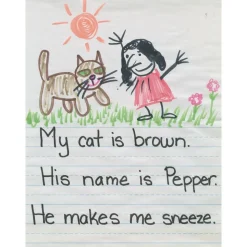 My cat is brown.
His name is Pepper.
He makes me sneeze.